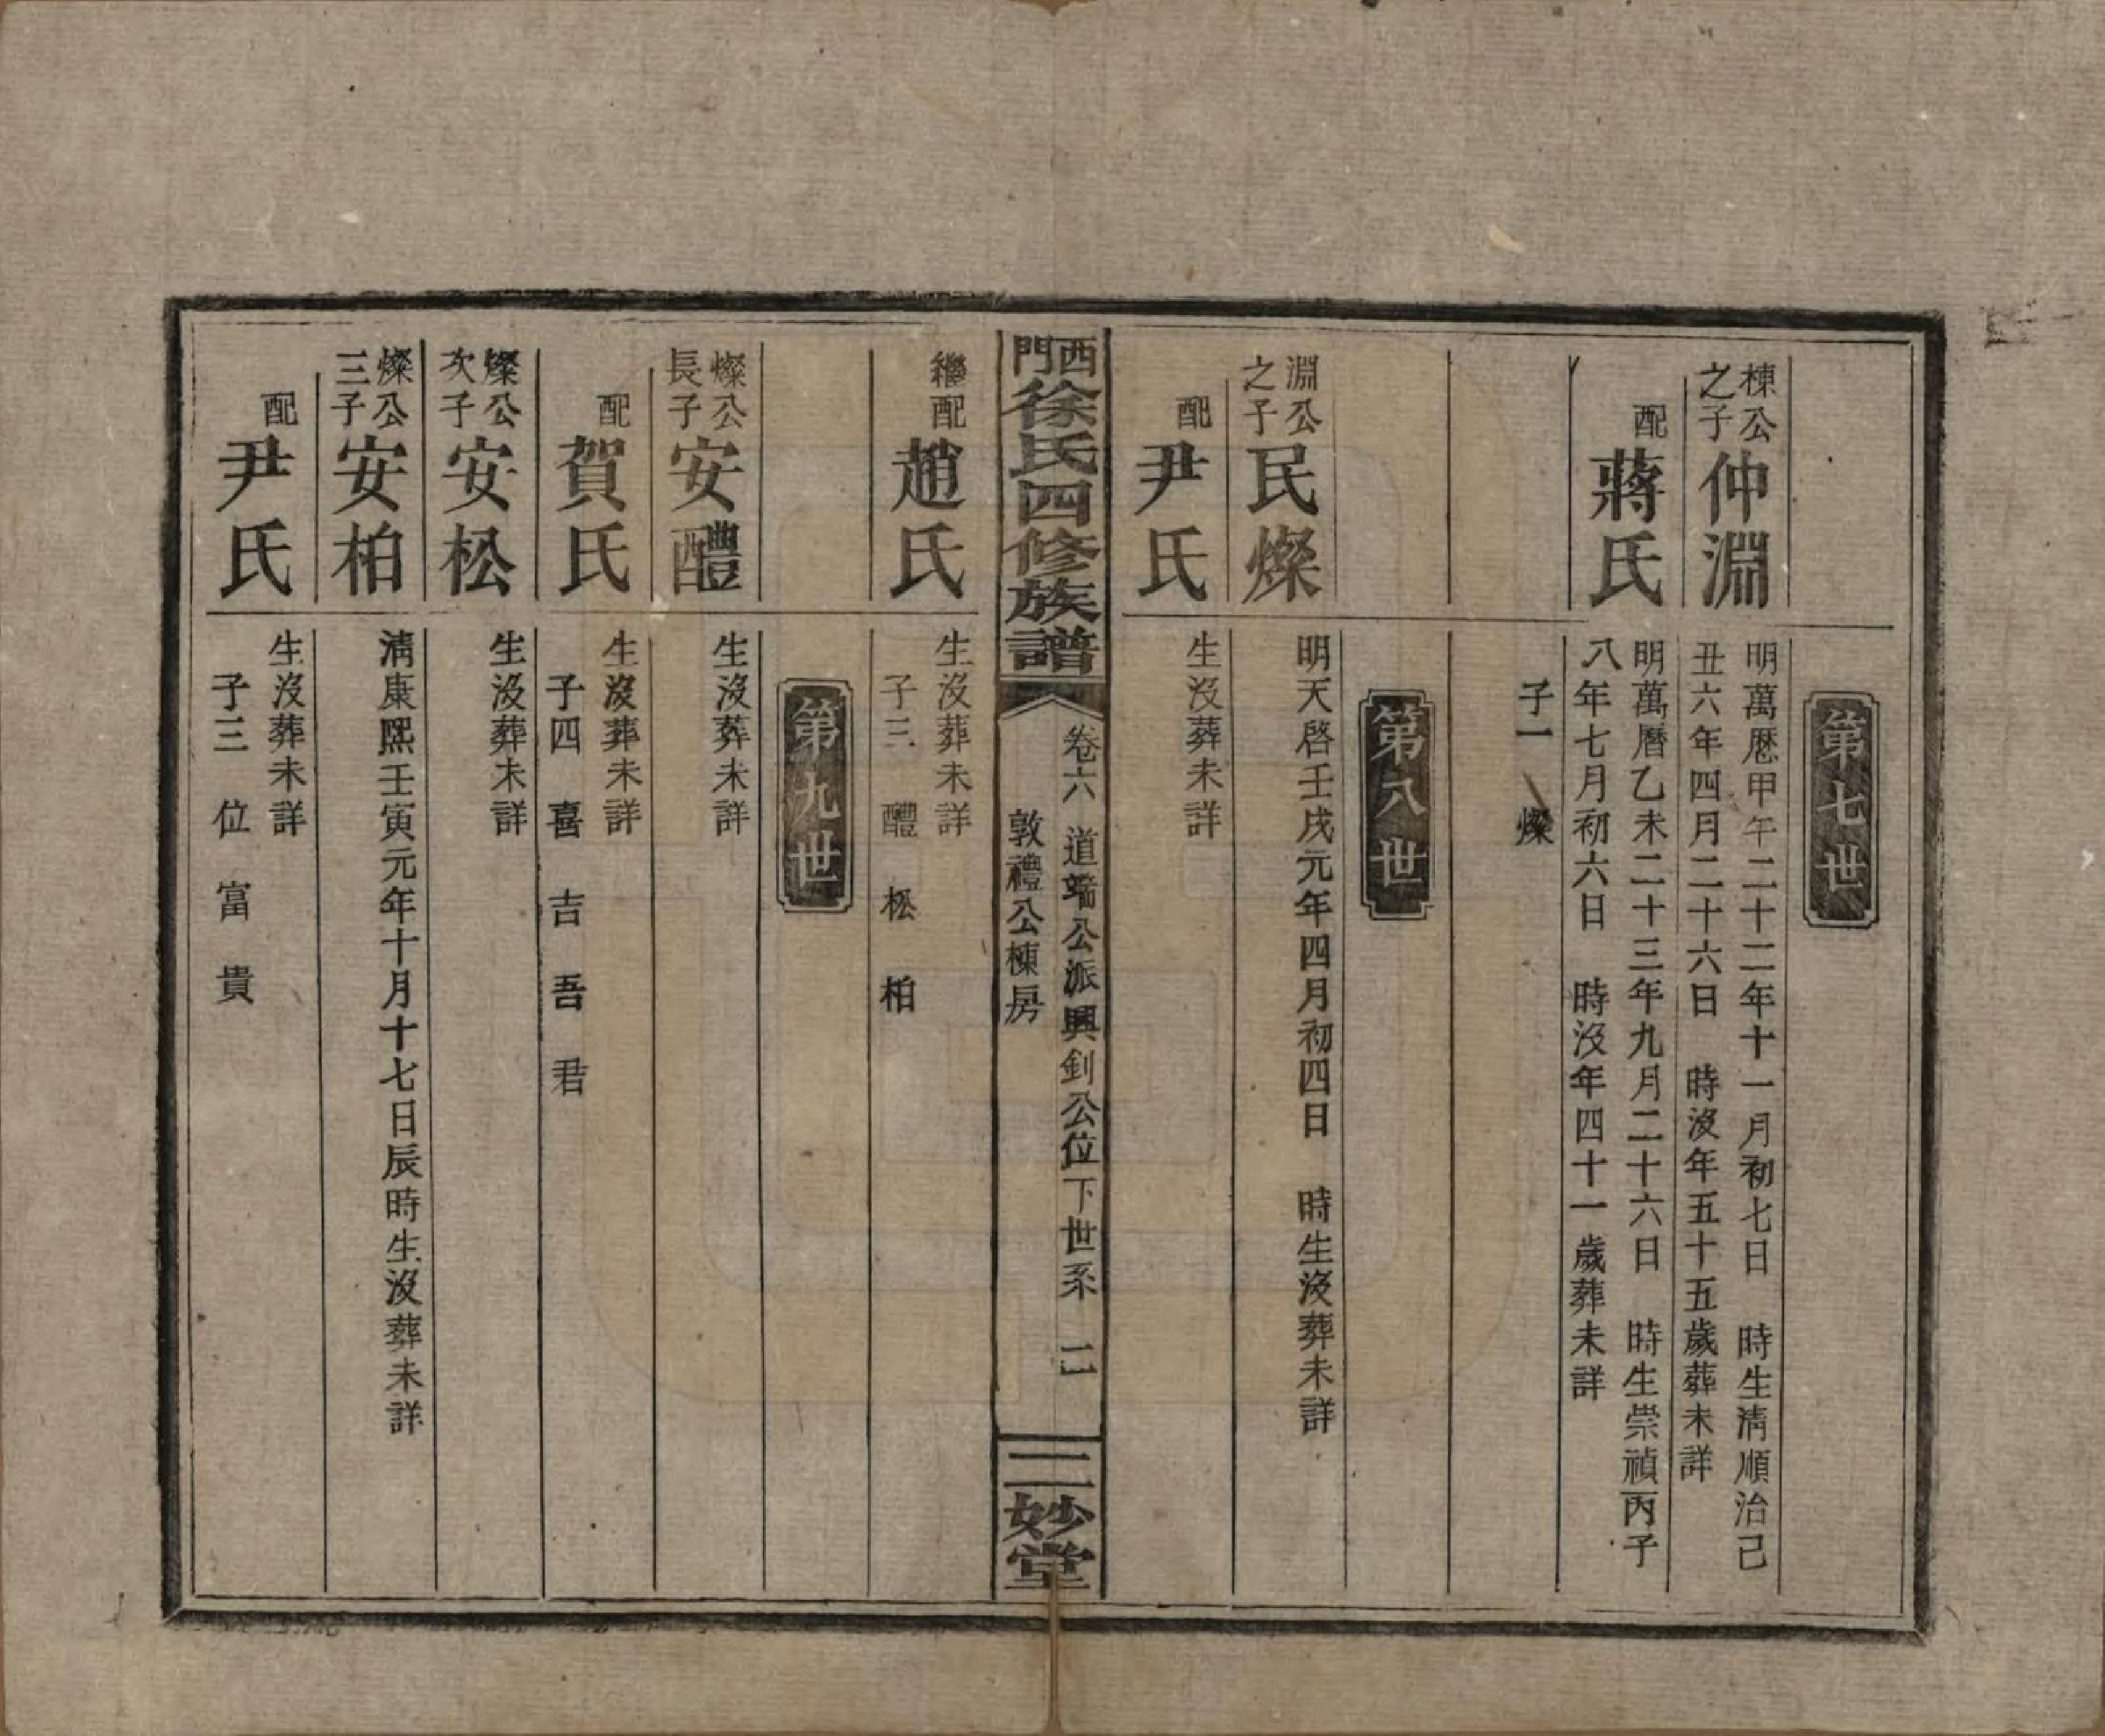 第七世
棟公
之子
仲淵
明萬厯甲午二十二年十一月初七日　時生淸順治己
丑六年四月二十六日　時沒年五十五歲葬未詳
配
蔣氏
明萬曆乙未二十三年九月二十六日　時生崇禎丙子
八年七月初六日　時沒年四十一歲葬未詳
子一　燦
第八世
淵公
之子
民燦
明天啓壬戌元年四月初四日　時生沒葬未詳
配
尹氏
生沒葬未詳
西門徐氏四修族譜
卷六　道端公派興釗公位下世系　二
敦禮公棟房
三妙堂
繼配
趙氏
生沒葬未詳
子三　醴　松　柏
第九世
燦公
長子
安醴
生沒葬未詳
配
賀氏
生沒葬未詳
子四　喜　吉　吾　君
燦公
次子
安松
生沒葬未詳
燦公
三子
安柏
淸康熙壬寅元年十月十七日辰時生沒葬未詳
配
尹氏
生沒葬未詳
子三　位　富　貴